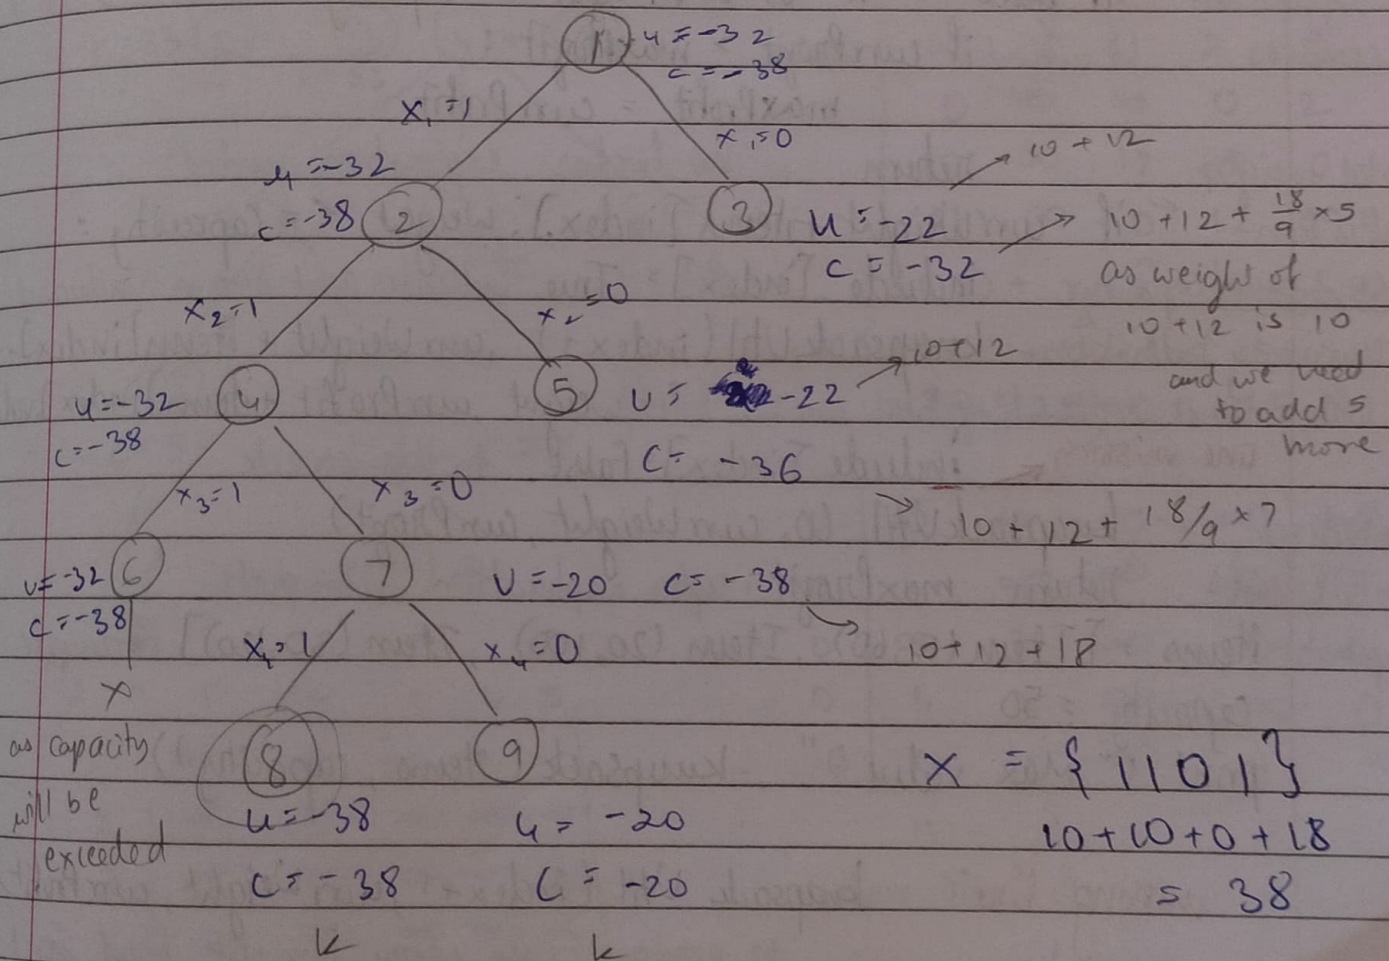 1 u = -32
c = -38
x₁=1
x₁=0
10 + 12
u = -32
c = -38 2
3 u = -22
10 + 12 + 18/9 × 5
c = -32
as weight of
10 + 12 is 10
and we need
to add 5
more
x₂=1
x₂=0
u = -32 4
c = -38
5 U = -22
10+12
C = -36
10 + 12 + 18/9 × 7
x₃=1
x₃=0
u = -32 6
c = -38
7 U = -20 C = -38
10+12+18
x₄=1
x₄=0
X
as capacity
will be
exceeded
8
9
u = -38
C = -38
u = -20
C = -20
X = {1101}
10+10+0+18
= 38